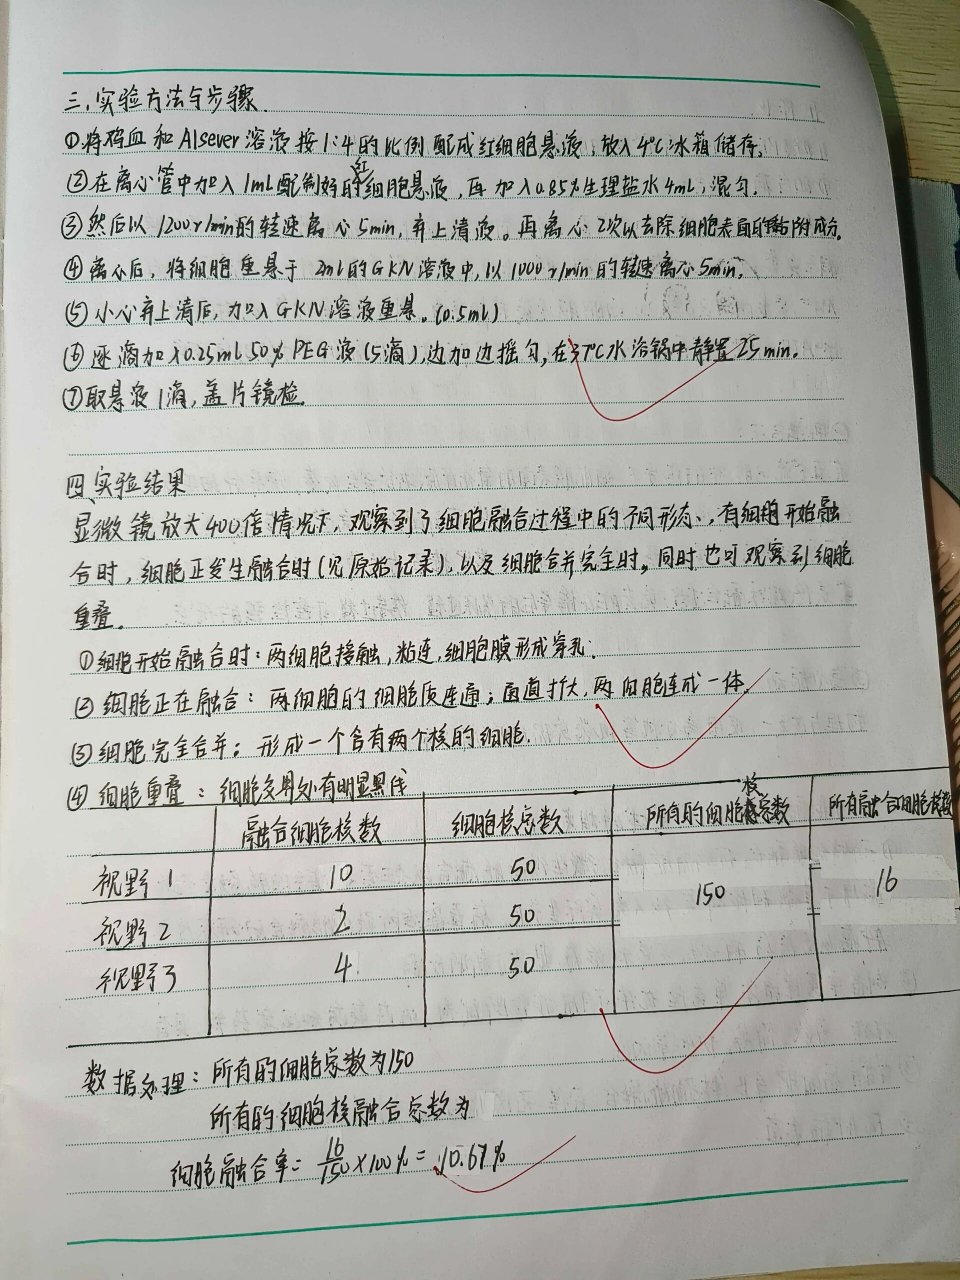 三、实验方法与步骤
①将鸡血和Alsever溶液按1:4的比例配成红细胞悬液,放入4℃冰箱储存。
②在离心管中加入1mL配制好的红细胞悬液,再加入0.85%生理盐水4mL,混匀。
③然后以1200r/min的转速离心5min,弃上清液。再离心2次以去除细胞表面的黏附成分。
④离心后,将细胞重悬于2ml的GKN溶液中,以1000r/min的转速离心5min。
⑤小心弃上清后,加入GKN溶液重悬。(0.5ml)
⑥逐滴加入0.25ml 50% PEG液(5滴),边加边摇匀,在37℃水浴锅中静置25min。
⑦取悬液1滴,盖片镜检。
四、实验结果
显微镜放大400倍情况下,观察到了细胞融合过程中的不同形态,有细胞开始融
合时,细胞正发生融合时(见原始记录),以及细胞合并完全时。同时也可观察到细胞
重叠。
①细胞开始融合时:两细胞接触,粘连,细胞膜形成穿孔。
②细胞正在融合:两细胞的细胞质连通;面直扩大,两细胞连成一体。
③细胞完全合并:形成一个含有两个核的细胞。
④细胞重叠:细胞交界处有明显黑线
融合细胞核数 细胞核总数 所有的细胞核总数 所有融合细胞核数
视野1 10 50
视野2 2 50 150 16
视野3 4 50
数据处理:所有的细胞总数为150
所有的细胞核融合总数为
细胞融合率=16/150×100%=10.67%